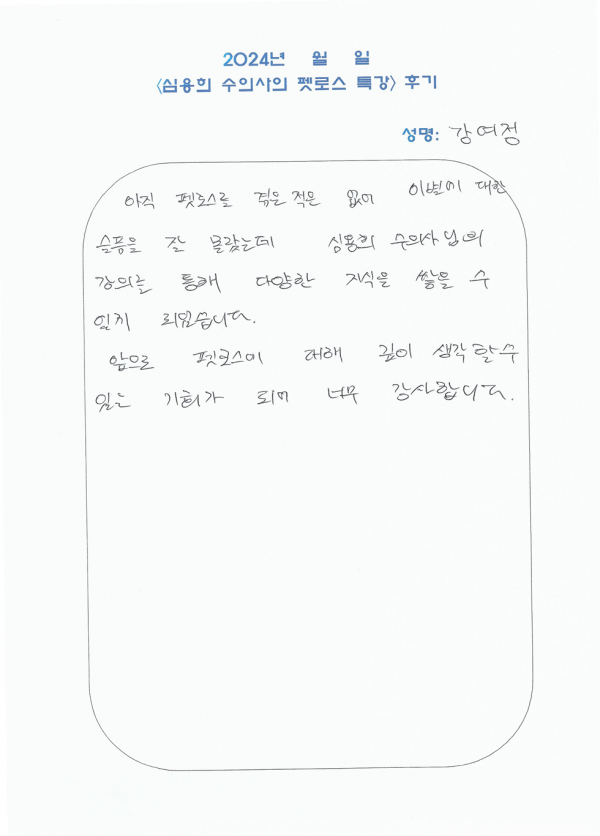 2024년 월 일
<심용희 수의사의 펫로스 특강> 후기
성명: 강여정
아직 펫로스를 겪은 적은 없어 이별에 대한
슬픔을 잘 몰랐는데 심용희 수의사님의
강의를 통해 다양한 지식을 쌓을 수
있게 되었습니다.
앞으로 펫로스에 대해 깊이 생각할 수
있는 기회가 되어 너무 감사합니다.